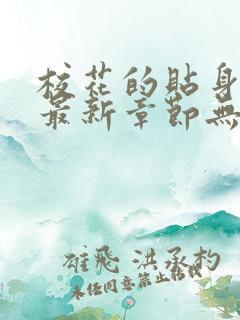 校花的貼身
最新章節無
雄飛 洪承杓
未经同意禁止转载